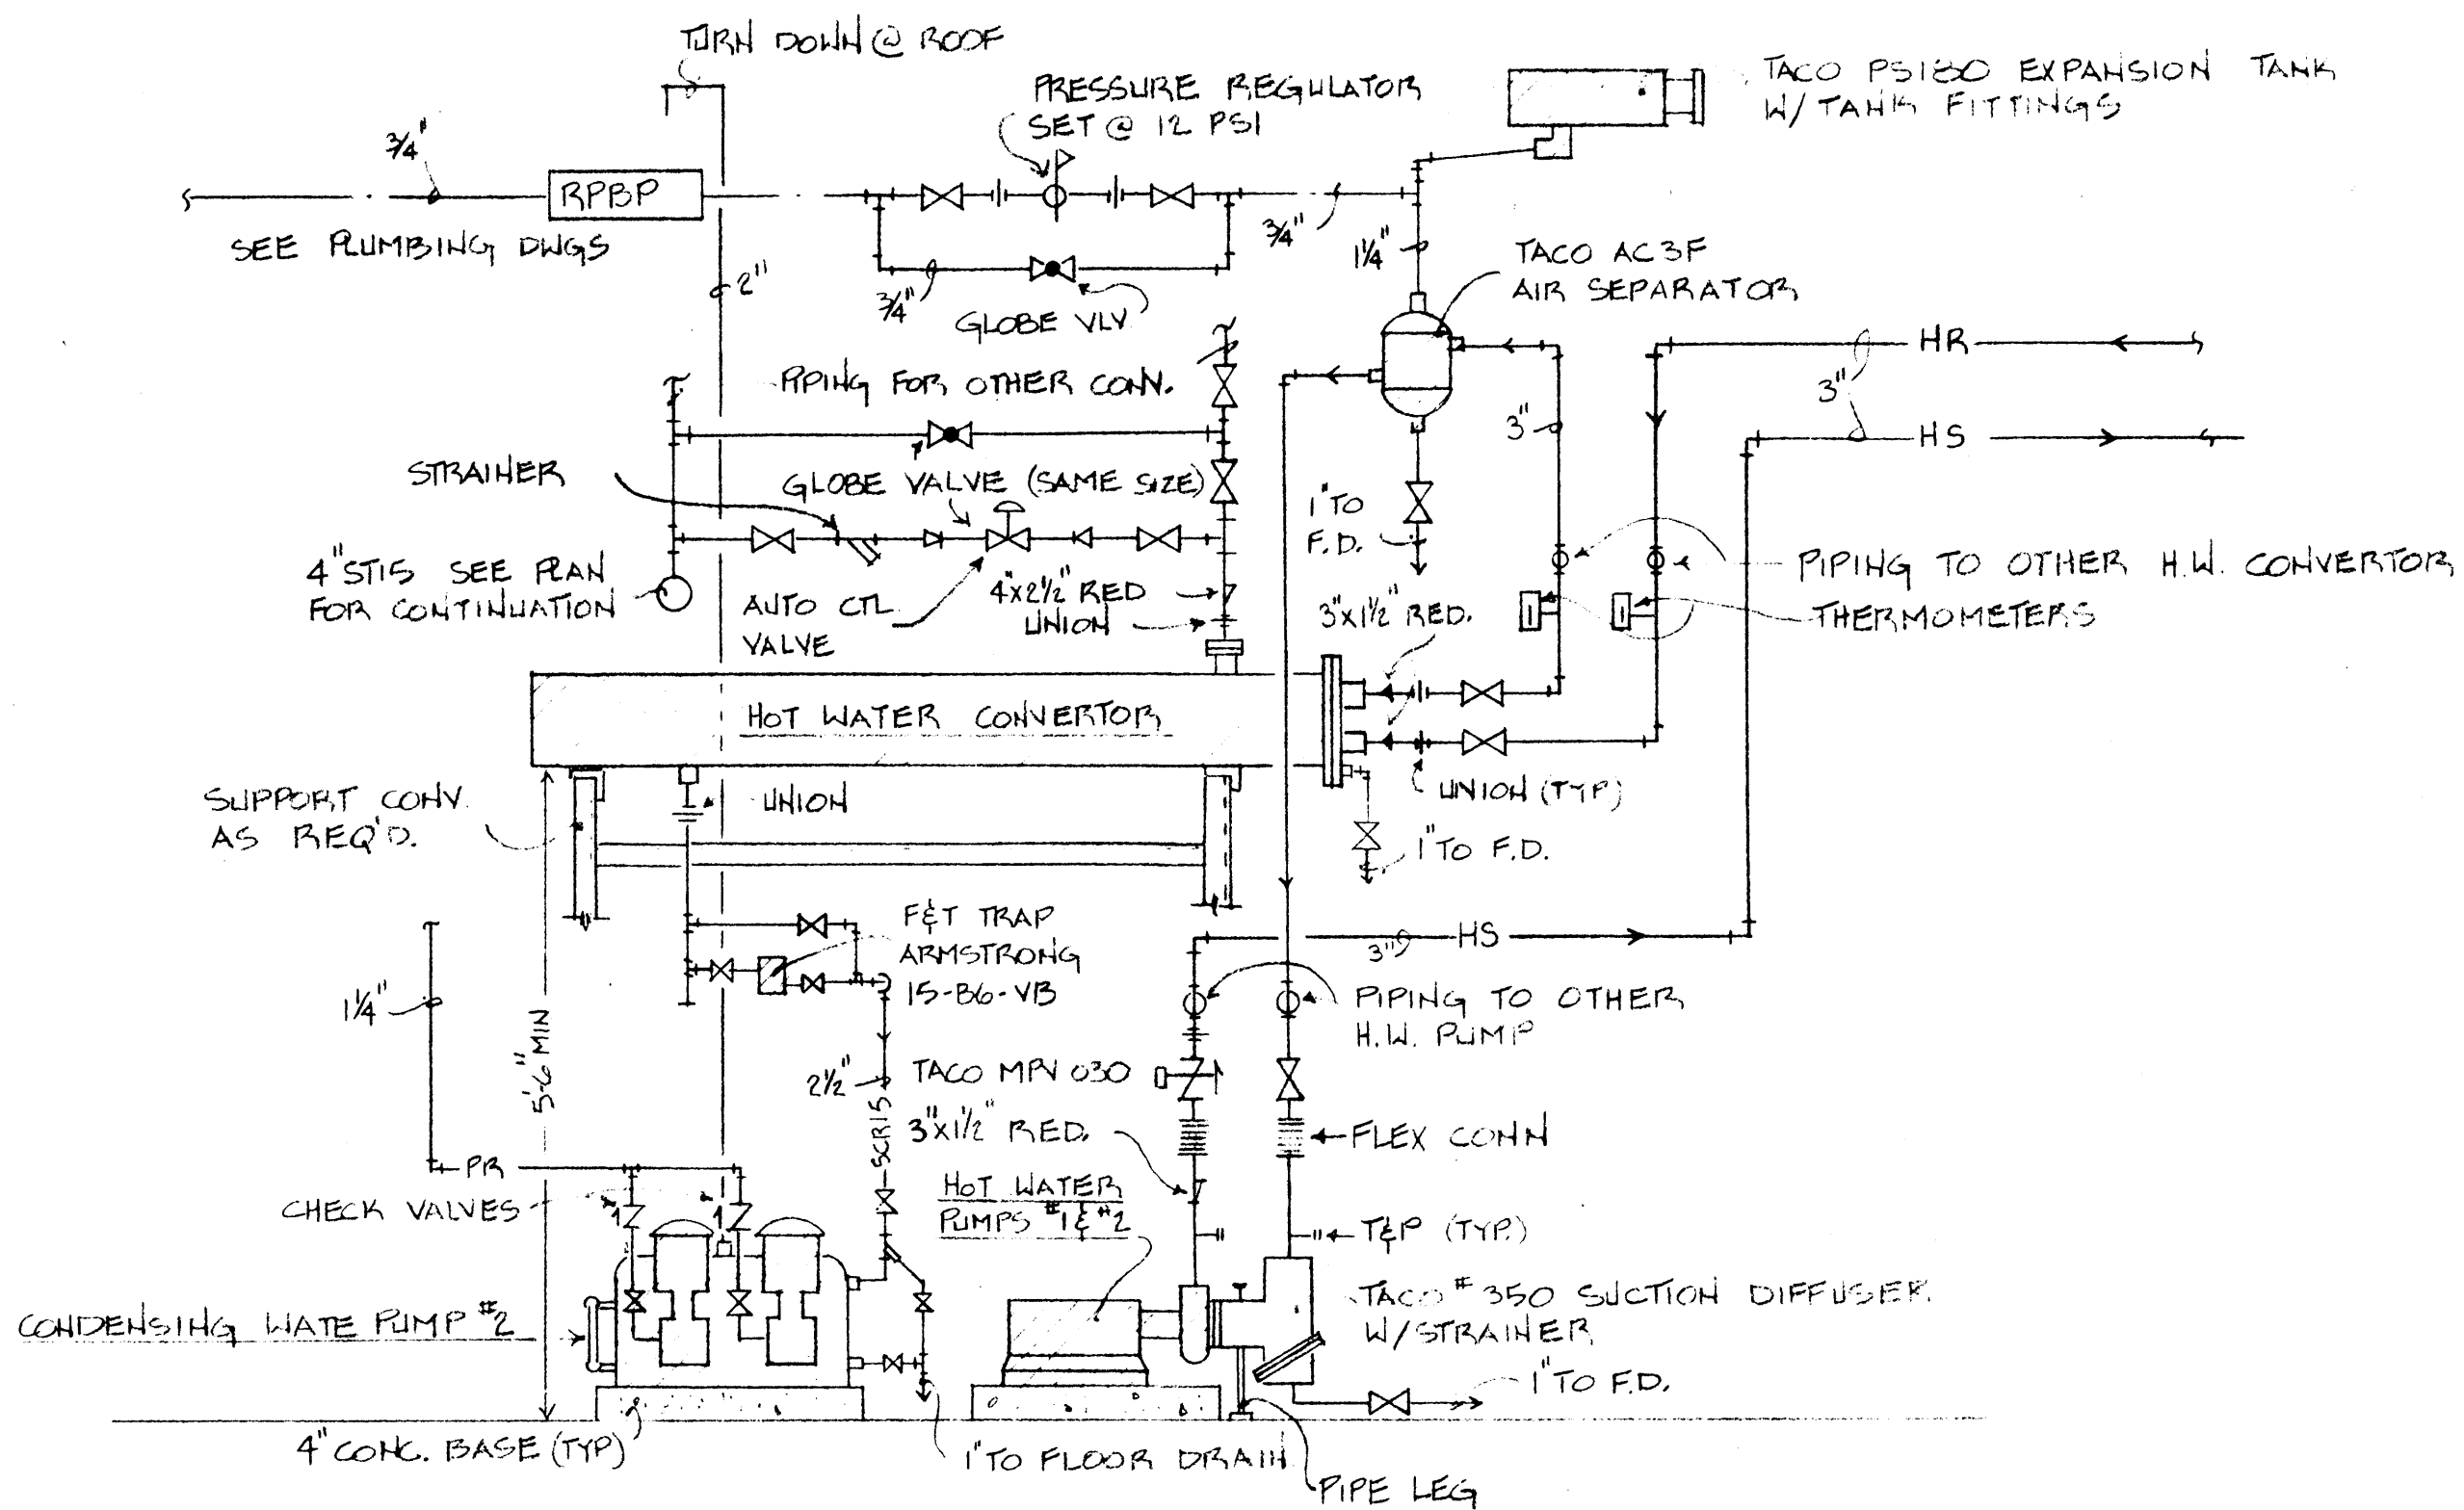 TURN DOWN @ ROOF
PRESSURE REGULATOR
SET @ 12 PSI
TACO PS180 EXPANSION TANK
W/ TANK FITTINGS
3/4"
RPBP
SEE PLUMBING DWGS
2"
3/4"
GLOBE VLV
3/4"
1 1/4"
TACO AC3F
AIR SEPARATOR
HR
3"
HS
PIPING FOR OTHER CONV.
3"
STRAINER
GLOBE VALVE (SAME SIZE)
1" TO
F.D.
4" ST15 SEE PLAN
FOR CONTINUATION
AUTO CTL
VALVE
4"x2 1/2" RED
UNION
3"x1 1/2" RED.
PIPING TO OTHER H.W. CONVERTOR
THERMOMETERS
HOT WATER CONVERTOR
SUPPORT CONV.
AS REQ'D.
UNION
UNION (TYP)
1" TO F.D.
F&T TRAP
ARMSTRONG
15-B6-VB
3"
HS
1 1/4"
5'-6" MIN
PIPING TO OTHER
H.W. PUMP
2 1/2"
SCR15
TACO MPV 030
3"x1 1/2" RED.
FLEX CONN
PR
CHECK VALVES
HOT WATER
PUMPS #1 & #2
T&P (TYP.)
CONDENSING WATE PUMP #2
TACO #350 SUCTION DIFFUSER
W/STRAINER
1" TO F.D.
4" CONC. BASE (TYP)
1" TO FLOOR DRAIN
PIPE LEG